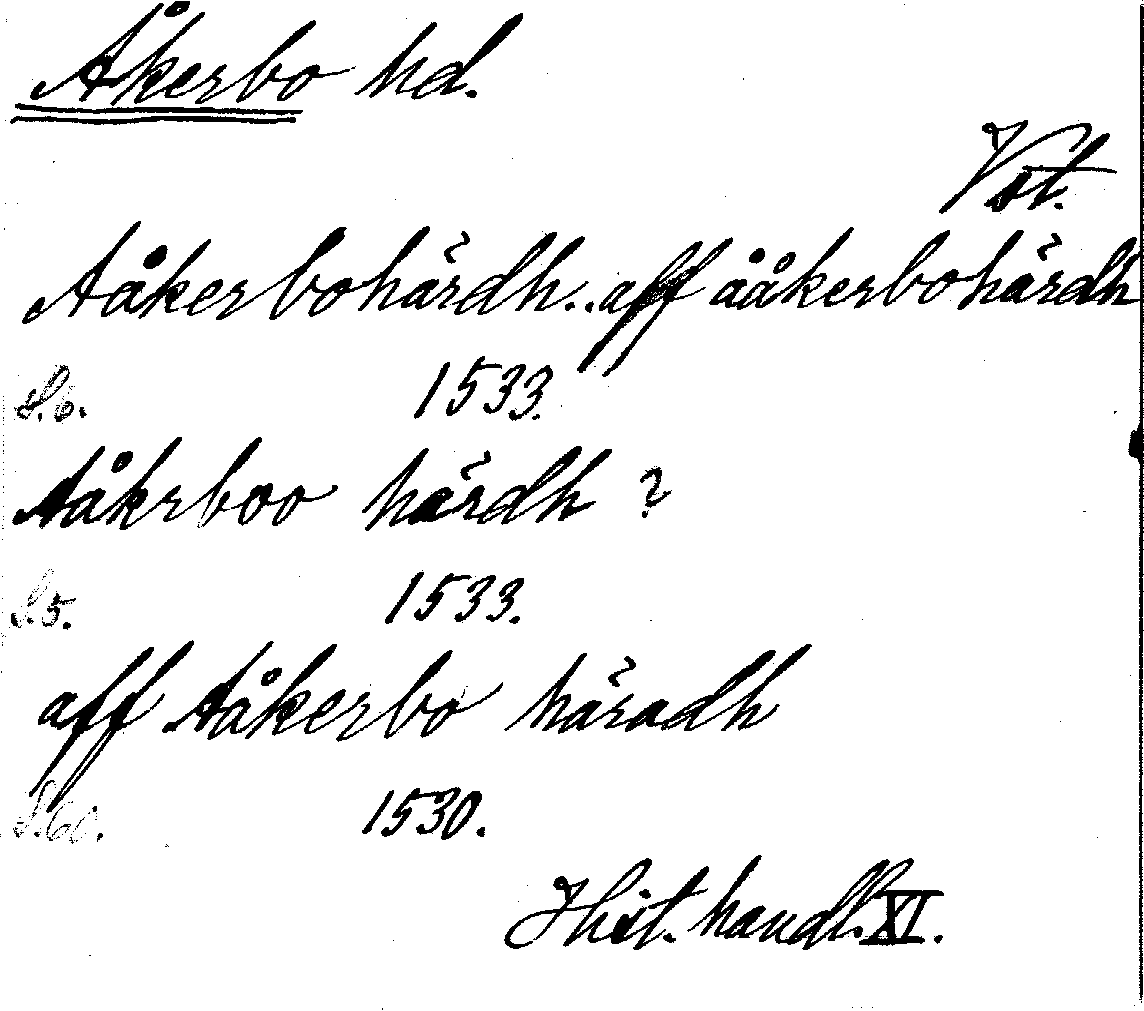 Åkerbo hd.
Vst.
Aåkerbohärdh. aff ååkerbohärdh
S. 6. 1533.
Aåkrboo härdh ?
S. 5. 1533.
aff Aåkerbo häradh
S. 60. 1530.
Hist. handl. XI.